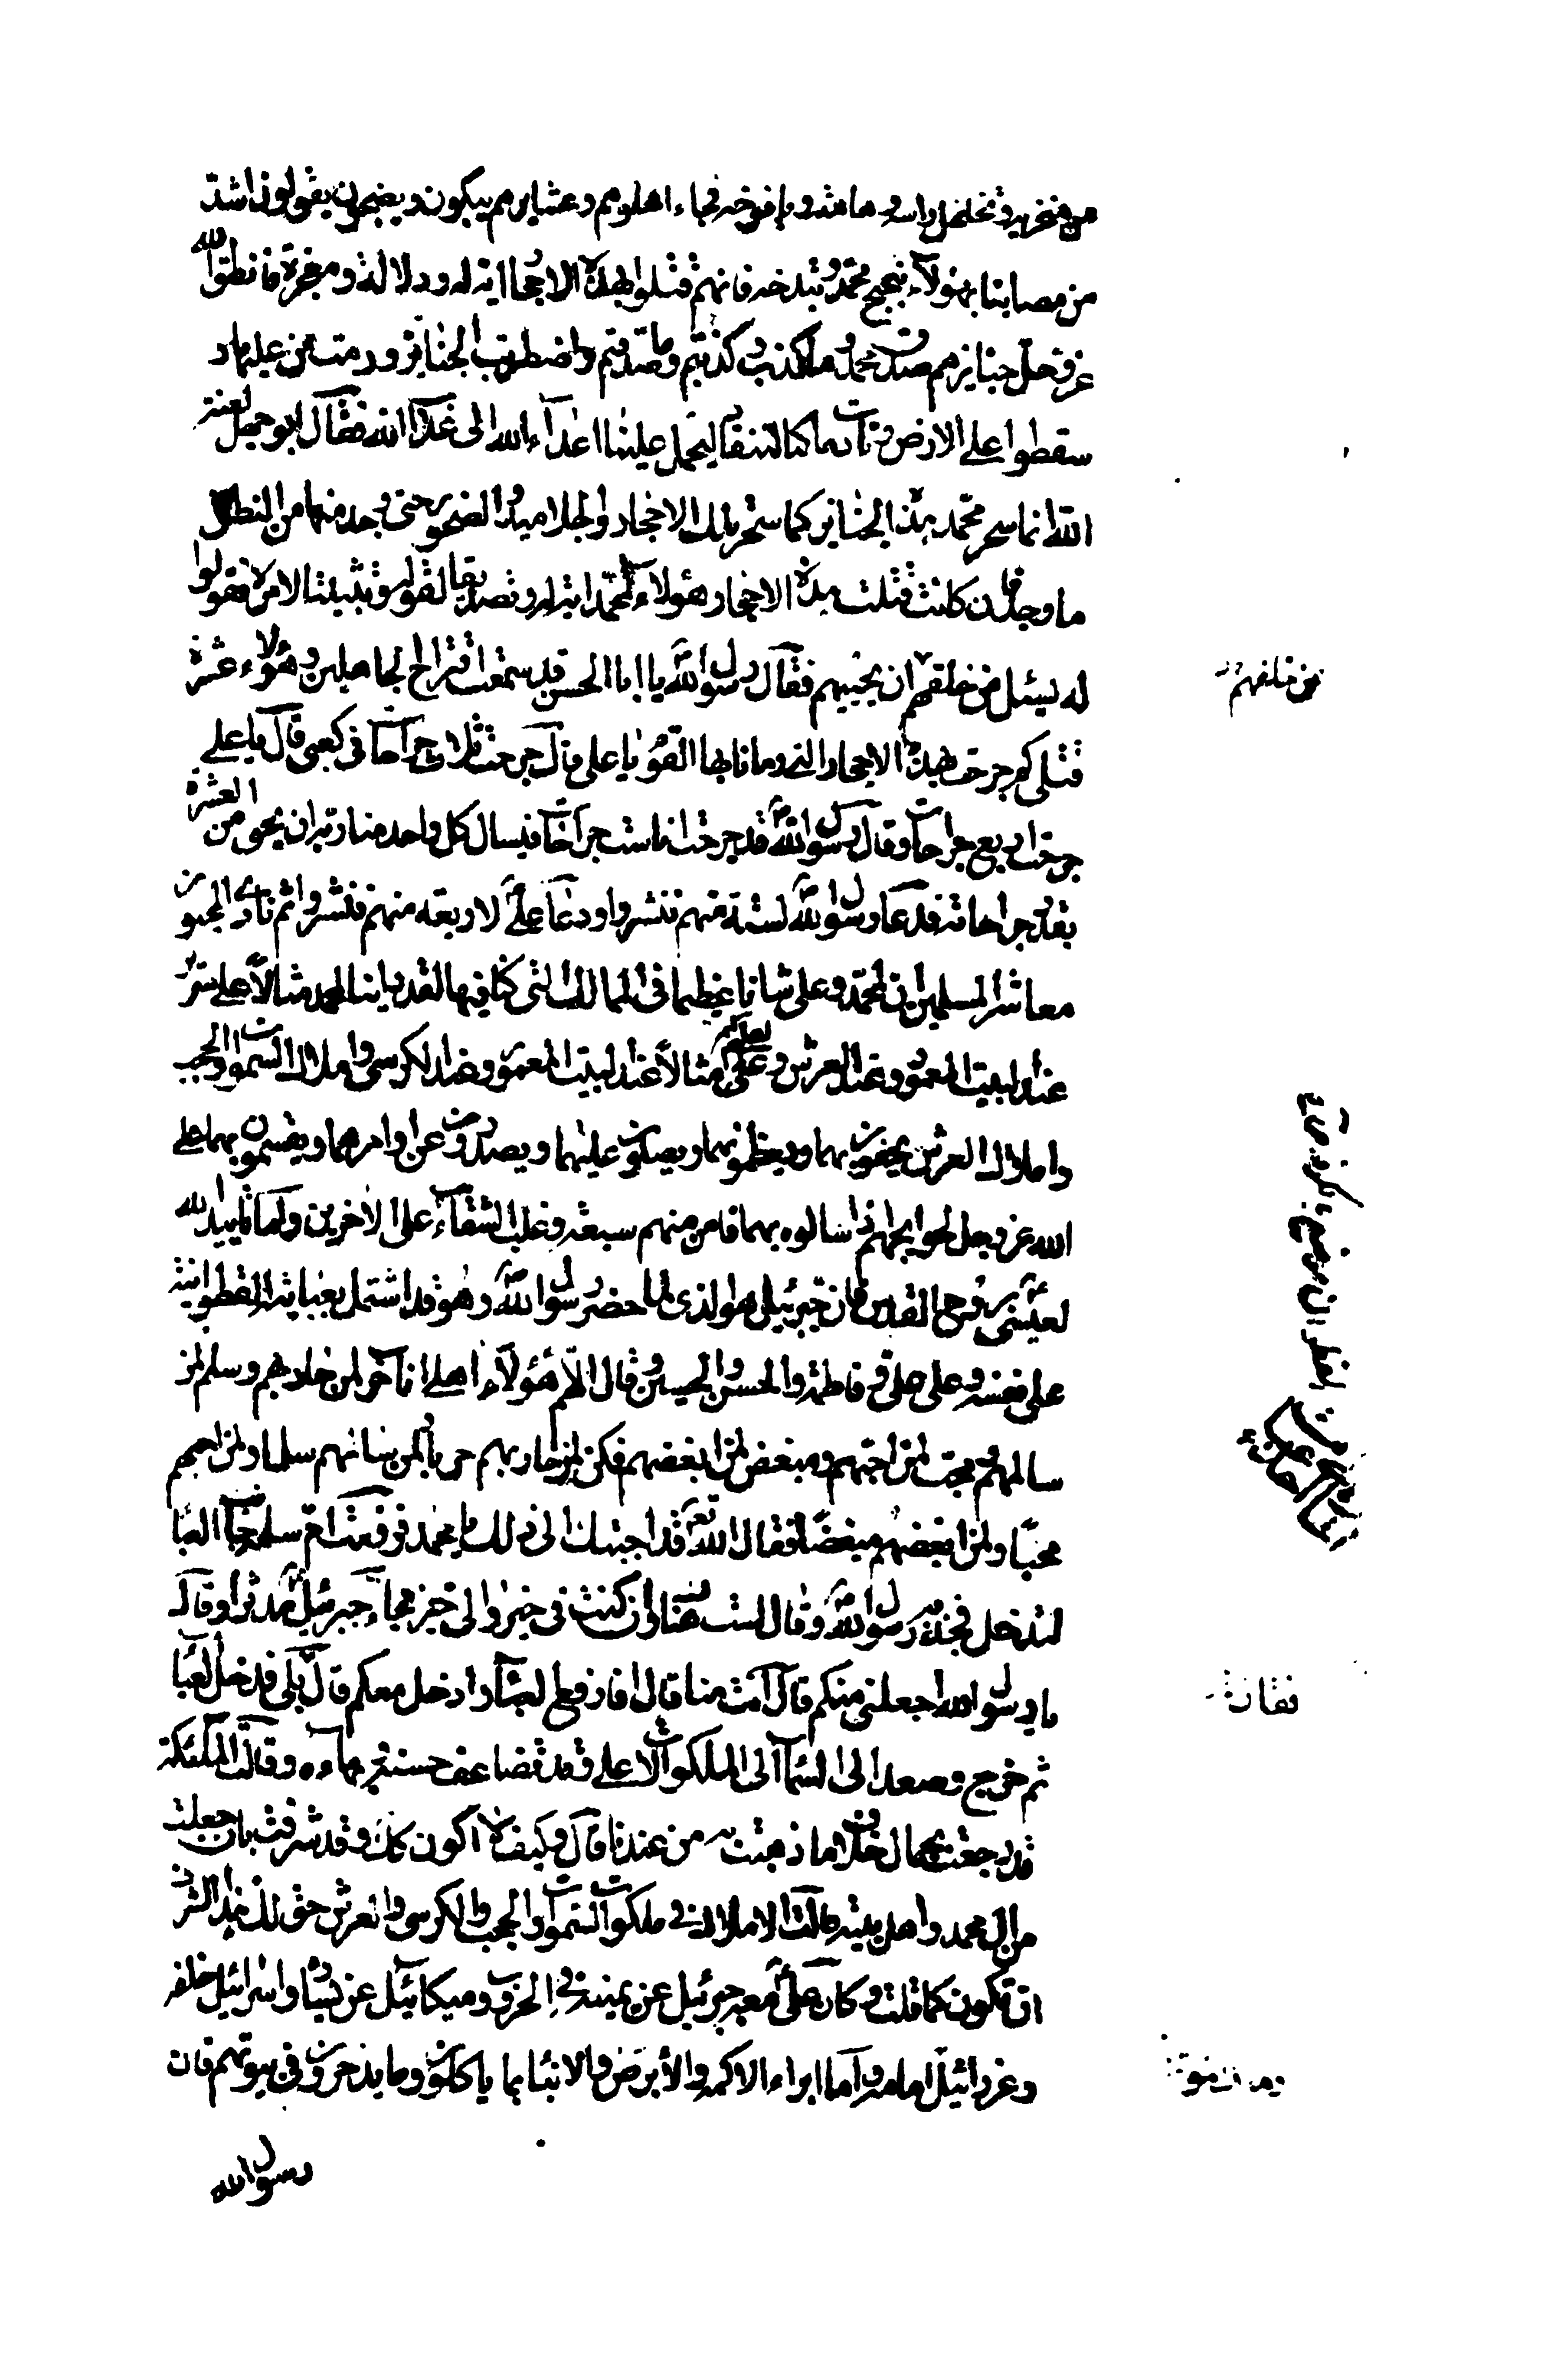 من منخريه وتخلخل راسه وهامته ويافوخه فجاء اهلوهم وعشايرهم يبكون ويضجون يقولون اشد
من مصابنا بهؤلاء تبجح محمد وتبذخه فانهم قتلوا بهذه الاحجار اية له ودلالة ومعجزة فانطق الله
عز وجل جنايزهم صدق محمد وما كذب وكذبتم وما صدقتم واضطربت الجنايز ورمت من عليها و
سقطوا على الارض ونادت ما كنا لننقاد ليحمل علينا اعداء الله الى عذاب الله فقال ابو جهل لعنه
الله انما سحر محمد هذه الجنايز كما سحر تلك الاحجار والجلاميد والصخور حتى وجد منها من النطق
ما وجد فان كانت قتلت هذه الاحجار هؤلاء لمحمد اية له وتصديقا لقوله وتثبيتا لامره فقولوا
له يسئل من خلقهم ان يحييهم فقال رسول الله يا ابا الحسن قد سمعت اقتراح الجاهلين وهؤلاء عشرة
قتلى كم جرحت بهذه الاحجار التي رمانا بها القوم يا علي قال جرحت اربع جراحات في كعبي قال يا علي
جرحت اربع جراحات وقال رسول الله قد جرحت انا ست جراحات فليسال كل واحد منا ربه ان يحيى من العشرة
بقدر جراحاته فدعا رسول الله لستة منهم فنشروا ودعا علي لاربعة منهم فنشروا ثم نادى المحيون
معاشر المسلمين ان لمحمد وعلي شانا عظيما في الممالك التي كنا فيها لقد راينا لمحمد مثالا على سرير
عند البيت المعمور وعند العرش ولعلي مثالا عند البيت المعمور وعند الكرسي واملاك السموات والحجب
واملاك العرش يحفون بهما ويعظمونهما ويصلون عليهما ويصدرون عن اوامرهما ويقسمون بهما على
الله عز وجل لحوايجهم اذا سالوه بهما فامن منهم سبعة وغلب الشقاء على الاخرين واما تاييد الله
لعيسى بروح القدس فان جبرئيل هو الذي لما حضر رسول الله وهو قد اشتمل بعباءته القطوانية
على نفسه وعلى علي وفاطمة والحسن والحسين وقال اللهم هؤلاء اهلي انا حرب لمن حاربهم وسلم لمن
سالمهم محب لمن احبهم ومبغض لمن ابغضهم فكن لمن حاربهم حربا ولمن سالمهم سلما ولمن احبهم
محبا ولمن ابغضهم مبغضا فقال الله قد اجبتك الى ذلك يا محمد فرفعت ام سلمة جانب العبا
لتدخل فجذبه رسول الله وقال لست هناك وان كنت في خير والى خير فجاء جبرئيل مدثرا وقال
يا رسول الله اجعلني منكم قال انت منا قال افارفع العباء وادخل معكم قال بلى فدخل العبا
ثم خرج وصعد الى السماء الى الملكوت الاعلى وقد تضاعف حسنه وبهاءه وقالت الملئكة
قد رجعت بجمال خلاف ما ذهبت به من عندنا قال وكيف لا اكون كك وقد شرفت بان جعلت
من ال محمد واهل بيته قالت الاملاك في ملكوت السموات والحجب والكرسي والعرش حق لك هذا الشرف
ان تكون كما قلت وكان علي معه جبرئيل عن يمينه في الحروب وميكائيل عن يساره واسرافيل خلفه
وعزرائيل امامه واما ابراء الاكمه والابرص والانباء بما ياكلون وما يدخرون في بيوتهم فان
رسول الله
من خلفهم